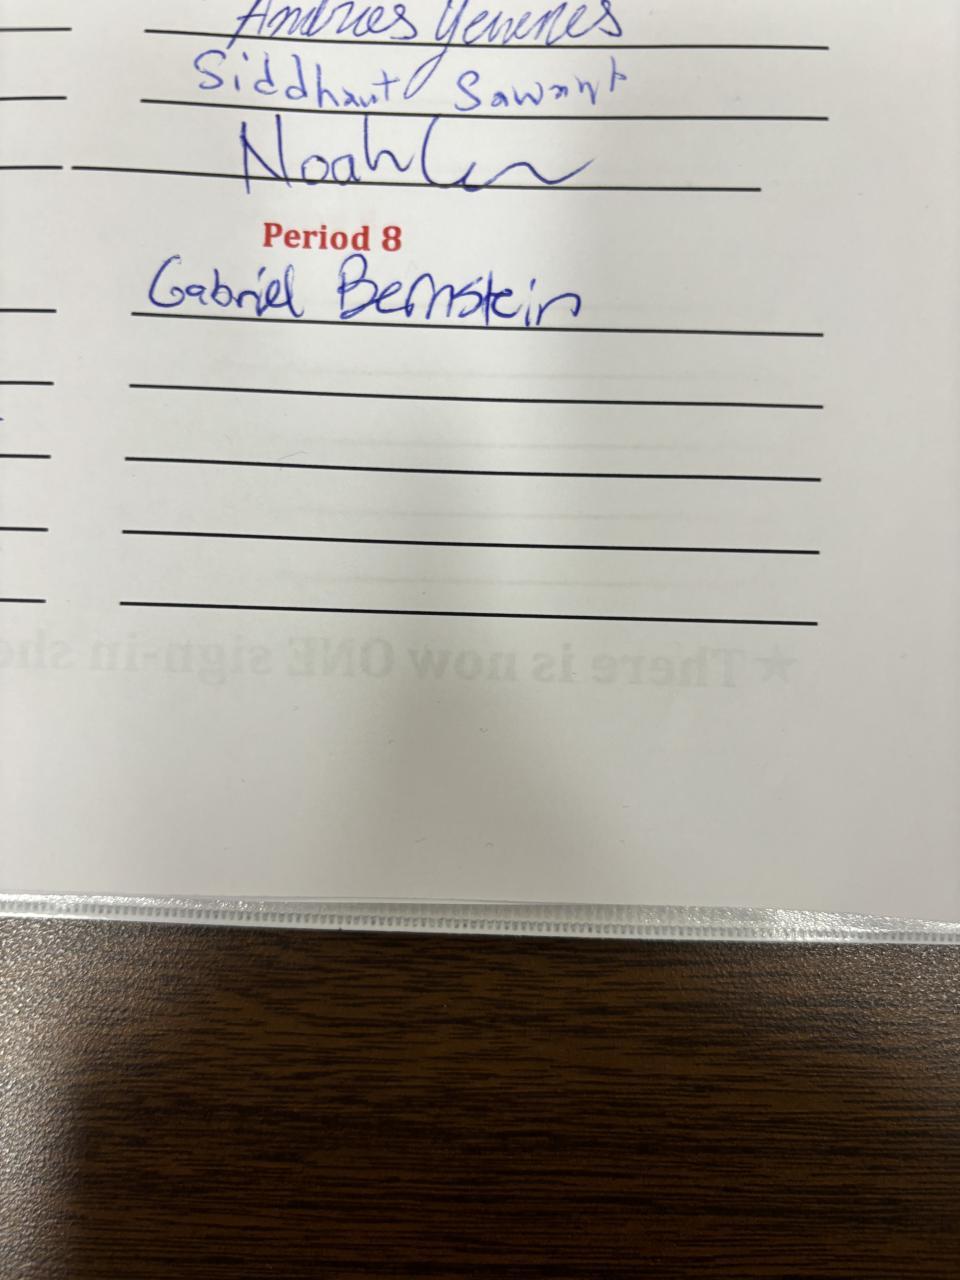 Andres Yevenes
Siddhant Sawant
Noah
Period 8
Gabriel Bernstein
★There is now ONE sign-in she